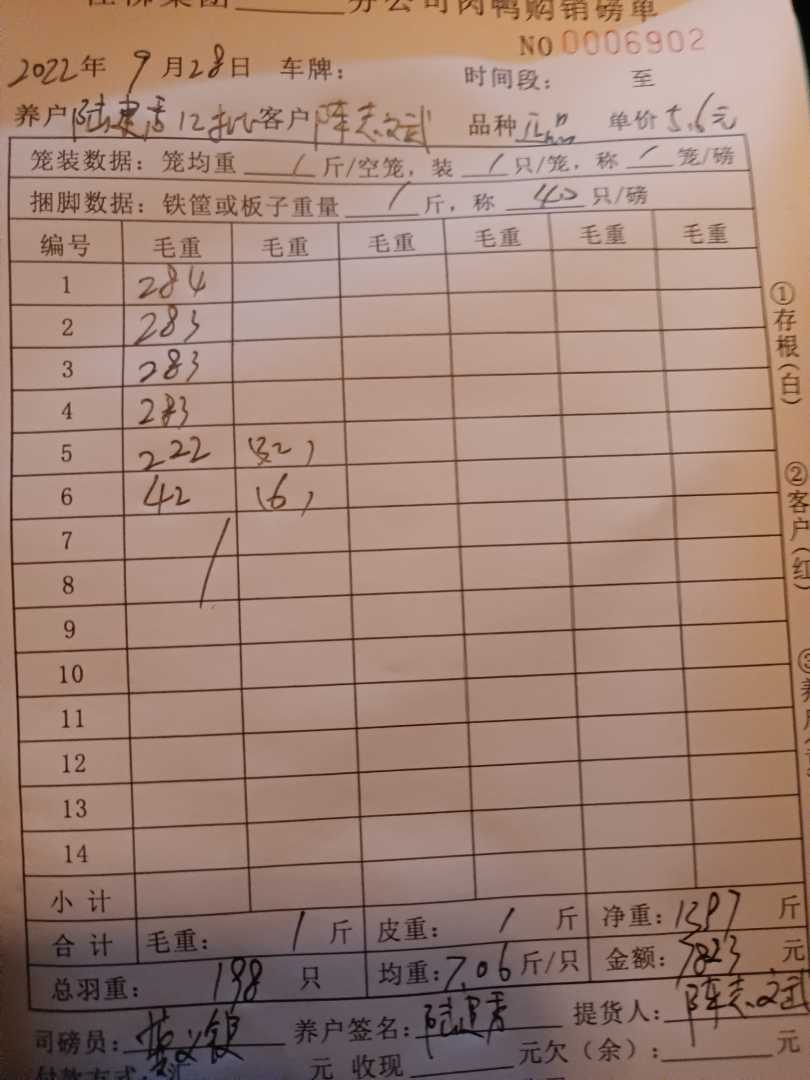 集团______分公司肉鸭购销磅单
NO 0006902
2022年 9月28日 车牌: 时间段: 至
养户 陆建秀 12批 客户 陈志文武 品种 单价 5.6元
笼装数据: 笼均重 / 斤/空笼, 装 / 只/笼, 称 / 笼/磅
捆脚数据: 铁筐或板子重量 / 斤, 称 40 只/磅
编号 毛重 毛重 毛重 毛重 毛重 毛重
1 284
2 283
3 283
4 283
5 222 (32)
6 42 (6)
7 /
8
9
10
11
12
13
14
小计
合计 毛重: / 斤 皮重: / 斤 净重: 1397 斤
总羽重: 198 只 均重: 7.06 斤/只 金额: 7823 元
司磅员: 养户签名: 陆建秀 提货人: 陈志文武
付款方式: 元 收现______元欠(余):______元
①存根(白)
②客户(红)